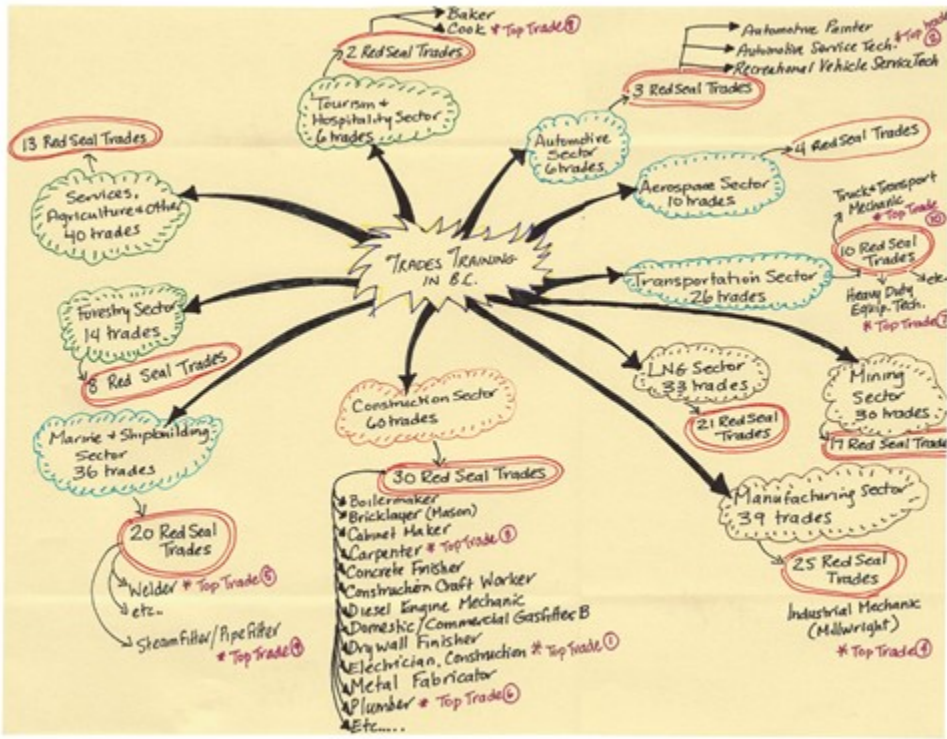 TRADES TRAINING
IN B.C.
Baker
Cook * Top Trade
2 Red Seal Trades
Tourism +
Hospitality Sector
6 trades
Automotive Painter
Automotive Service Tech. * Top trade
2
Recreational Vehicle Service Tech
3 Red Seal Trades
Automotive
Sector
6 trades
4 Red Seal Trades
Aerospace Sector
10 trades
Truck + Transport
Mechanic
* Top Trade
10
10 Red Seal
Trades
etc.
Heavy Duty
Equip. Tech.
* Top Trade
Transportation Sector
26 trades
Mining
Sector
30 trades
17 Red Seal Trade
LNG Sector
33 trades
21 Red Seal
Trades
Manufacturing Sector
39 trades
25 Red Seal
Trades
Industrial Mechanic
(Millwright)
* Top Trade
Construction Sector
60 trades
30 Red Seal Trades
Boilermaker
Bricklayer (Mason)
Cabinet Maker
Carpenter * Top Trade 3
Concrete Finisher
Construction Craft Worker
Diesel Engine Mechanic
Domestic/Commercial Gasfitter B
Drywall Finisher
Electrician, Construction * Top Trade 1
Metal Fabricator
Plumber * Top Trade 6
Etc.....
Marine + Shipbuilding
Sector
36 trades
20 Red Seal
Trades
Welder * Top Trade 5
etc..
Steamfitter/Pipefitter
* Top Trade
Forestry Sector
14 trades
8 Red Seal Trades
13 Red Seal Trades
Services,
Agriculture + Other
40 trades